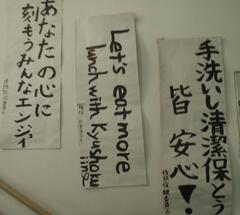 あなたの心に
刻もうみんなエンジョイ
Let's eat more
lunch with Kyushoku
time
手洗いし清潔保とう
皆安心!